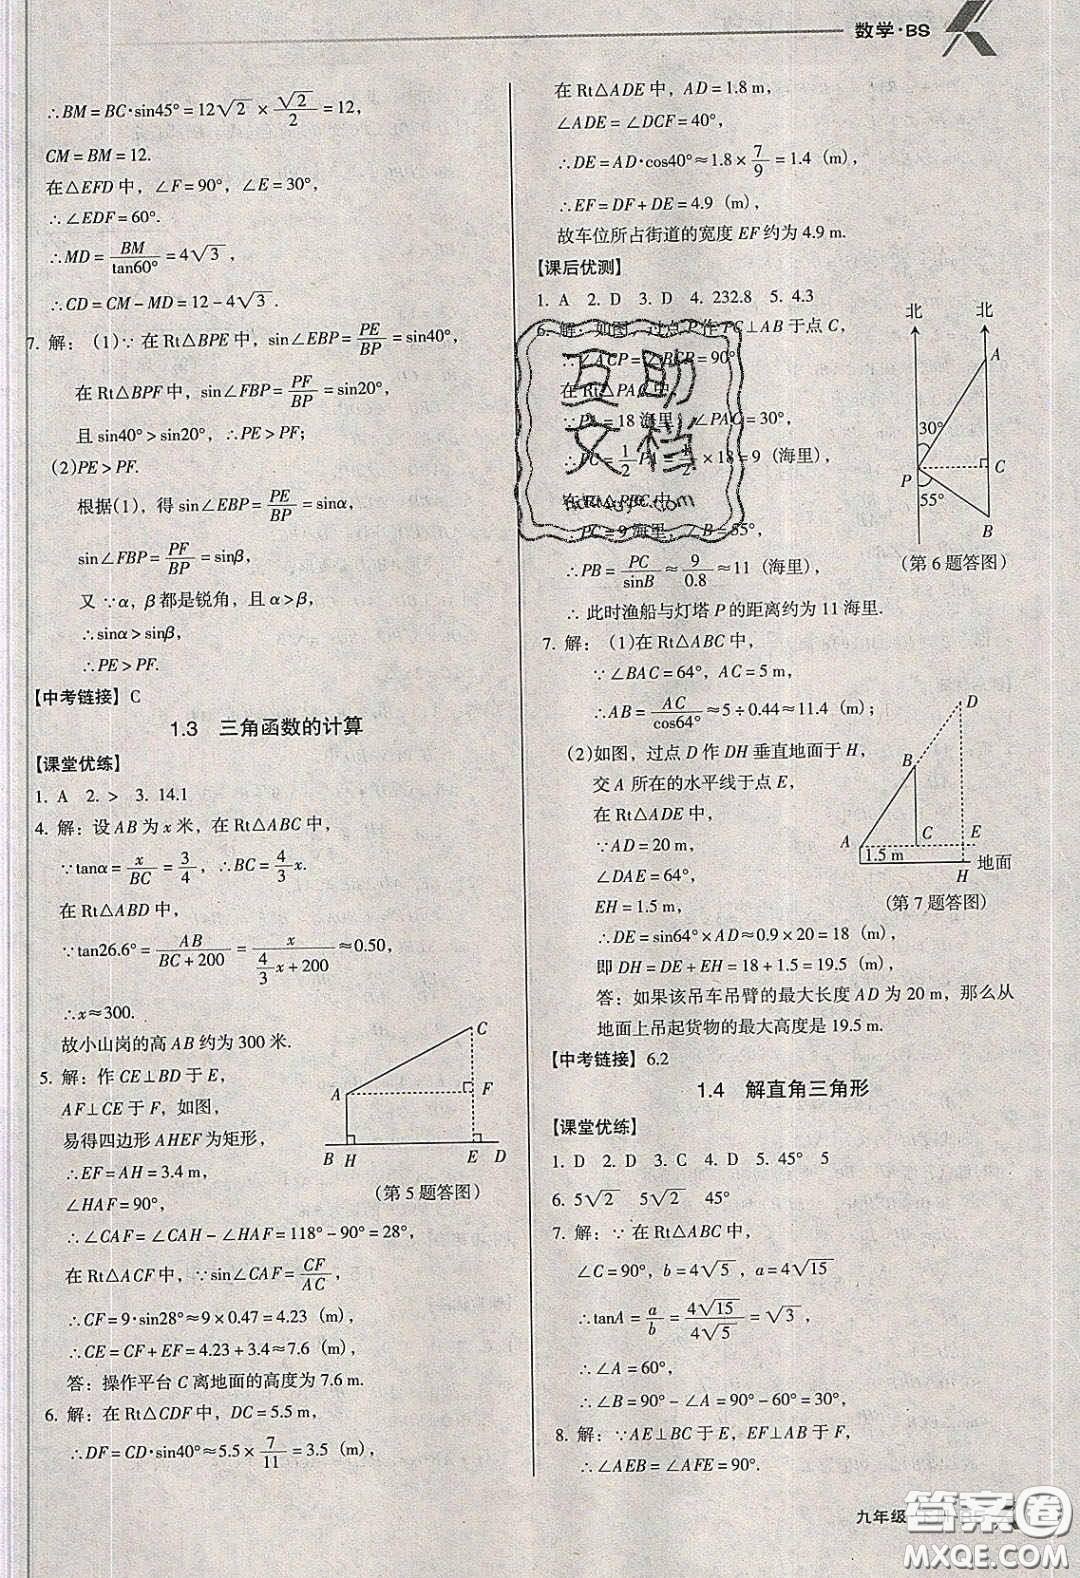 数学·BS
∴BM=BC·sin45°=12√2×√2/2=12,
CM=BM=12.
在△EFD中,∠F=90°,∠E=30°,
∴∠EDF=60°.
∴MD=BM/tan60°=4√3,
∴CD=CM-MD=12-4√3.
7. 解:(1)∵在Rt△BPE中,sin∠EBP=PE/BP=sin40°,
在Rt△BPF中,sin∠FBP=PF/BP=sin20°,
且sin40°>sin20°,∴PE>PF;
(2)PE>PF.
根据(1),得sin∠EBP=PE/BP=sinα,
sin∠FBP=PF/BP=sinβ,
又∵α,β都是锐角,且α>β,
∴sinα>sinβ,
∴PE>PF.
【中考链接】C
1.3 三角函数的计算
【课堂优练】
1. A 2. > 3. 14.1
4. 解:设AB为x米,在Rt△ABC中,
∵tanα=x/BC=3/4,∴BC=4/3x.
在Rt△ABD中,
∵tan26.6°=AB/(BC+200)=x/(4/3x+200)≈0.50,
∴x≈300.
故小山岗的高AB约为300米.
5. 解:作CE⊥BD于E,
AF⊥CE于F,如图,
易得四边形AHEF为矩形,
∴EF=AH=3.4 m,
∠HAF=90°,
∴∠CAF=∠CAH-∠HAF=118°-90°=28°,
在Rt△ACF中,∵sin∠CAF=CF/AC,
∴CF=9·sin28°≈9×0.47=4.23(m),
∴CE=CF+EF=4.23+3.4≈7.6(m),
答:操作平台C离地面的高度为7.6 m.
C
A
F
B H E D
(第5题答图)
6. 解:在Rt△CDF中,DC=5.5 m,
∴DF=CD·sin40°≈5.5×7/11=3.5(m),
在Rt△ADE中,AD=1.8 m,
∠ADE=∠DCF=40°,
∴DE=AD·cos40°≈1.8×7/9=1.4(m),
∴EF=DF+DE=4.9(m),
故车位所占街道的宽度EF约为4.9 m.
【课后优测】
1. A 2. D 3. D 4. 232.8 5. 4.3
6. 解:如图,过点P作PC⊥AB于点C,
∴∠ACP=∠BCP=90°
在Rt△PAC中,
∵PA=18海里,∠PAC=30°,
∴PC=1/2PA=1/2×18=9(海里),
在Rt△PBC中,
∵PC=9海里,∠B=55°,
∴PB=PC/sinB≈9/0.8≈11(海里),
∴此时渔船与灯塔P的距离约为11海里.
北 北
A
30°
P
C
55°
B
(第6题答图)
7. 解:(1)在Rt△ABC中,
∵∠BAC=64°,AC=5 m,
∴AB=AC/cos64°≈5÷0.44≈11.4(m);
(2)如图,过点D作DH垂直地面于H,
交A所在的水平线于点E,
在Rt△ADE中,
∵AD=20 m,
∠DAE=64°,
EH=1.5 m,
∴DE=sin64°×AD≈0.9×20=18(m),
即DH=DE+EH=18+1.5=19.5(m),
答:如果该吊车吊臂的最大长度AD为20 m,那么从
地面上吊起货物的最大高度是19.5 m.
D
B
A C E
1.5 m
H 地面
(第7题答图)
【中考链接】6.2
1.4 解直角三角形
【课堂优练】
1. D 2. D 3. C 4. D 5. 45° 5
6. 5√2 5√2 45°
7. 解:∵在Rt△ABC中,
∠C=90°,b=4√5,a=4√15
∴tanA=a/b=4√15/4√5=√3,
∴∠A=60°,
∴∠B=90°-∠A=90°-60°=30°,
8. 解:∵AE⊥BC于E,EF⊥AB于F,
∴∠AEB=∠AFE=90°.
互助
文档
九年级
答案圈
MXQE.COM